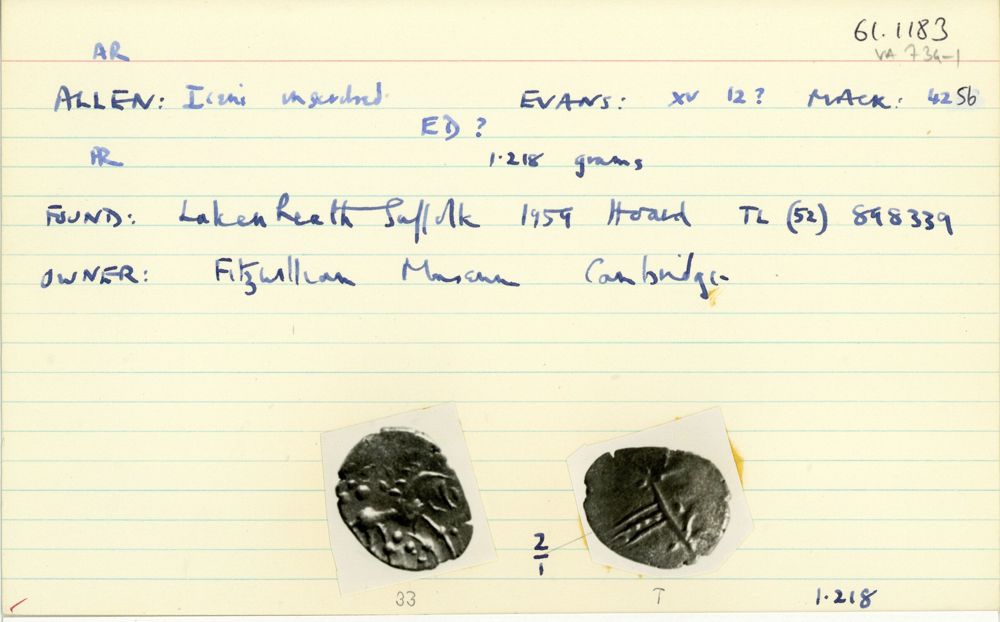 61.1183
VA 734-1
AR
ALLEN: Iceni inscribed EVANS: XV 12? MACK: 425b
ED?
AR 1.218 grams
FOUND: Lakenheath Suffolk 1959 Hoard TL (52) 898339
OWNER: Fitzwilliam Museum Cambridge
2/1
33 T 1.218